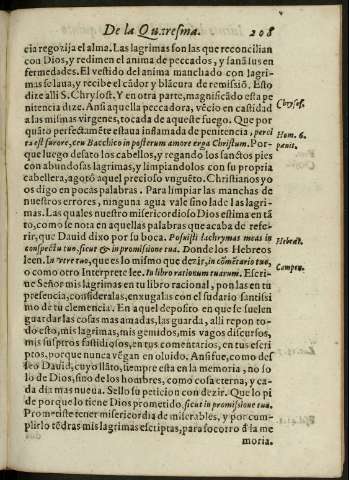 De la Quaresma. 208
cia regozija el alma. Las lagrimas son las que reconcilian
con Dios, y redimen el anima de peccados, y sanã sus en
fermedades. El vestido del anima manchado con lagri-
mas se laua, y recibe el cãdor y blãcura de remissiõ. Esto
dize alli S. Chrysost. Y en otra parte, magnificãdo esta pe
nitencia dize. Ansi aquella peccadora, vẽcio en castidad
a las mismas virgines, tocada de aqueste fuego. Que por
quãto perfectamẽte estaua inflamada de penitencia, perci
ta est furore, ceu Bacchico in posterum amore erga Christum. Por-
que luego desato los cabellos, y regando los sanctos pies
con abundosas lagrimas, y limpiandolos con su propria
cabellera, agotò aquel precioso vnguẽto. Christianos yo
os digo en pocas palabras. Para limpiar las manchas de
nuestros errores, ninguna agua vale sino la de las lagri-
mas. Las quales nuestro misericordioso Dios estima en tã
to, como se nota en aquellas palabras que acaba de refe-
rir, que Dauid dixo por su boca. Posuisti lachrymas meas in
conspectu tuo, sicut & in promissione tua. Donde los Hebreos
leen. In vtre tuo, que es lo mismo que dezir, in cõmẽtario tuo,
o como otro Interprete lee. In libro rationum tuarum. Escri-
ue Señor mis lagrimas en tu libro racional, pon las en tu
presencia, consideralas, enxugalas con el sudario santissi
mo de tu clemencia. En aquel deposito en que se suelen
guardar las cosas mas amadas, las guarda, alli repon to-
do esto, mis lagrimas, mis gemidos, mis vagos discursos,
mis suspiros fastidiosos, en tus comentarios, en tus escri
ptos, porque nunca vẽgan en oluido. Ansi fue, como des
seo Dauid, cuyo llãto, siempre esta en la memoria, no so
lo de Dios, sino de los hombres, como cosa eterna, y ca-
da dia mas nueua. Sello su peticion con dezir. Que lo pi
de porque lo tiene Dios prometido. sicut in promissione tua.
Prometiste tener misericordia de miserables, y por cum-
plirlo tẽdras mis lagrimas escriptas, para socorro d̃ la me
moria.
Chrysos.
Hom. 6.
pœnit.
Hebræi.
Campen.